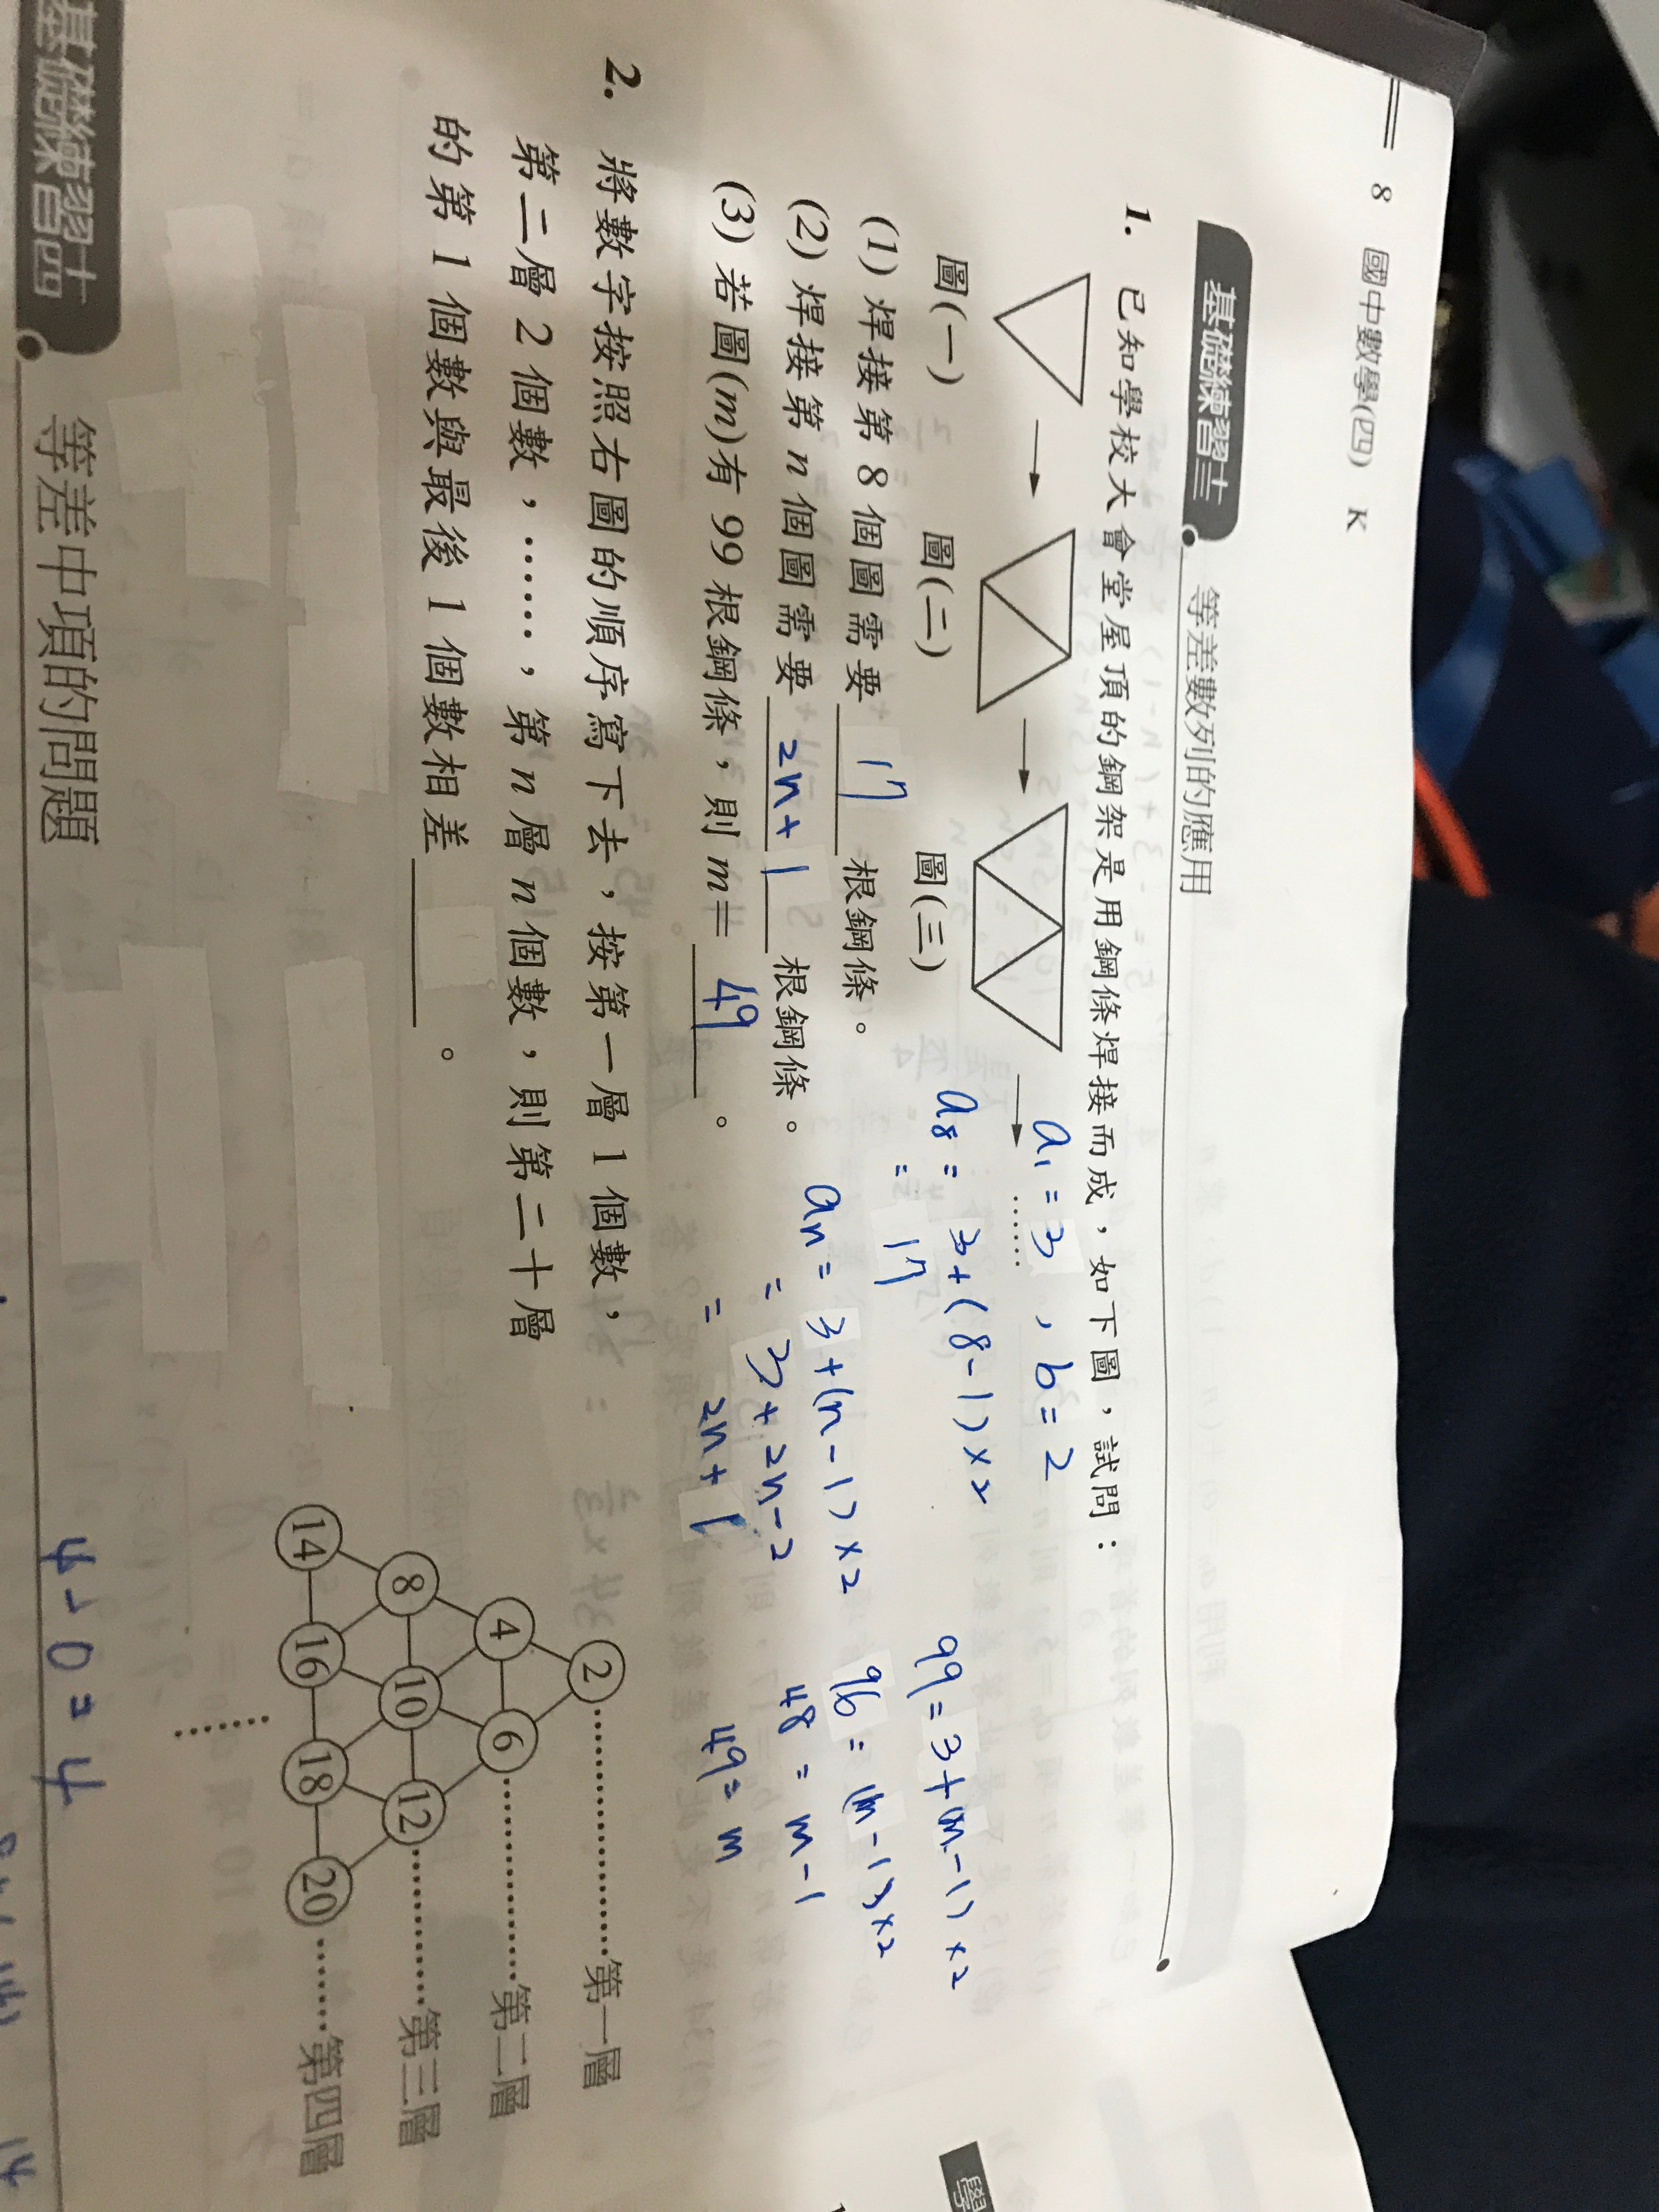 8 國中數學(四) K
基礎練習十三 等差數列的應用
1. 已知學校大會堂屋頂的鋼架是用鋼條焊接而成，如下圖，試問：
圖(一) 圖(二) 圖(三) ……
a₁=3 , b=2
(1) 焊接第 8 個圖需要 17 根鋼條。
a₈= 3+(8-1)×2
= 17
(2) 焊接第 n 個圖需要 2n+1 根鋼條。
aₙ= 3+(n-1)×2
= 3+2n-2
= 2n+1
(3) 若圖(m)有 99 根鋼條，則 m= 49 。
99=3+(m-1)×2
96=(m-1)×2
48=m-1
49=m
2. 將數字按照右圖的順序寫下去，按第一層 1 個數，
第二層 2 個數，……，第 n 層 n 個數，則第二十層
的第 1 個數與最後 1 個數相差 。
2 ……第一層
4 6 ……第二層
8 10 12 ……第三層
14 16 18 20 ……第四層
基礎練習十四 等差中項的問題
學